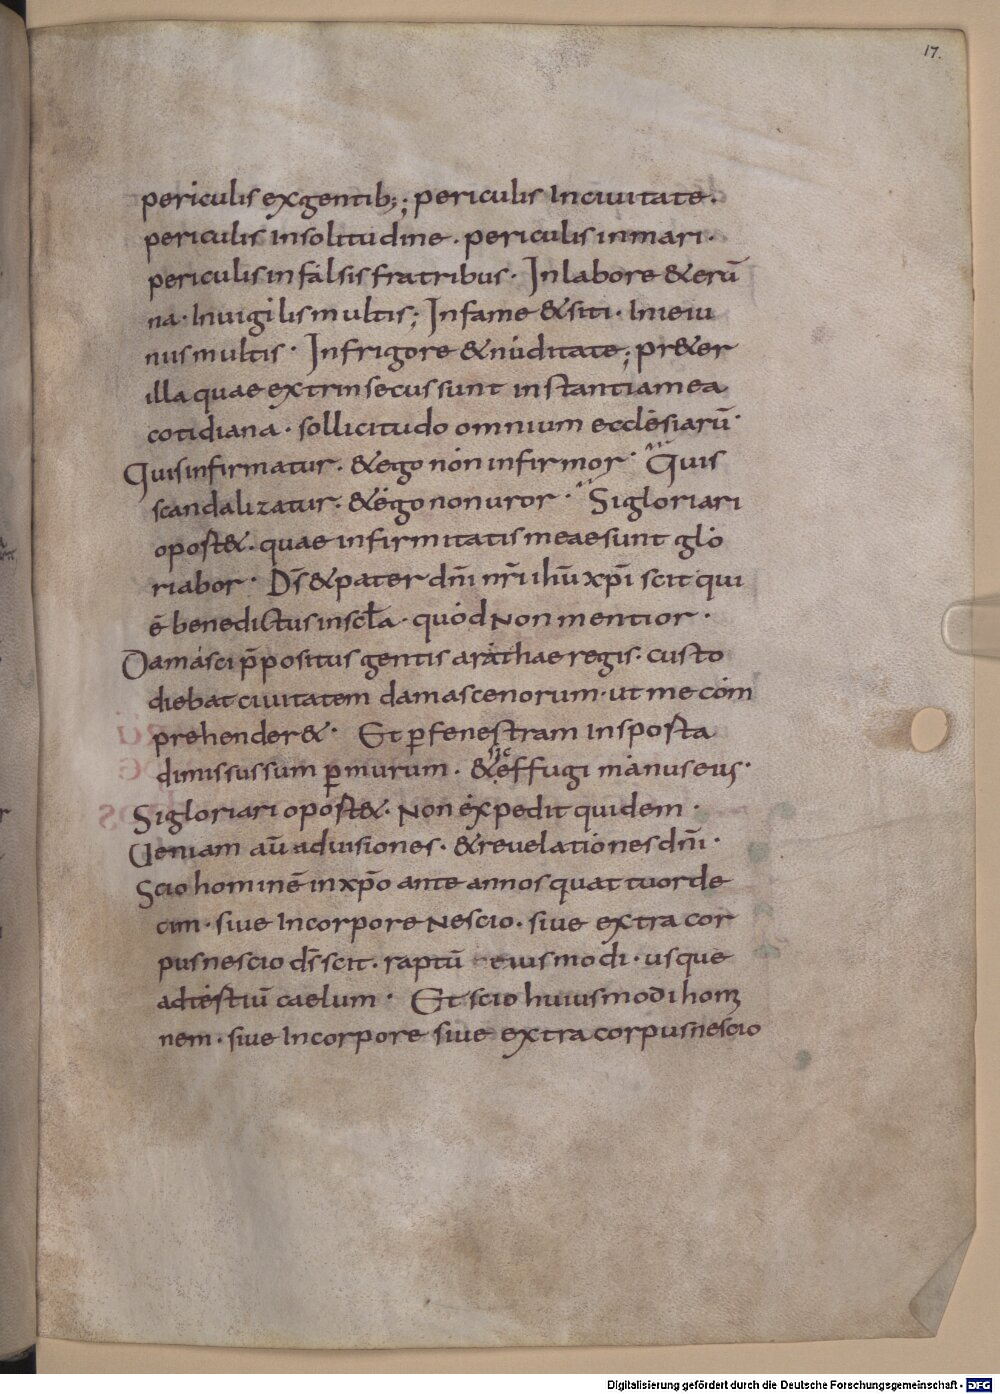 17.
periculis exgentib; ; periculis Inciuitate.
periculis insolitudine . periculis inmari .
periculis in falsis fratribus . Inlabore & erū
na . Inuigiliis multis ; Infame & siti . Inieiu
niis multis . Infrigore & nuditate ; pr&er
illa quae extrinsecus sunt instantia mea
cotidiana . sollicitudo omnium ecclesiarū .
Quis infirmatur . & ego non infirmor . Quis
scandalizatur . & ego non uror . Si gloriari
oport& . quae infirmitatis meae sunt glo
riabor . Ds̄ & pater dn̄i nr̄i ihū xp̄i scit qui
ē benedictus in scła . quod Non mentior .
Damasci p̄positus gentis arathae regis . custo
diebat ciuitatem damascenorum . ut me com
prehender& . Et p̱ fenestram In sporta
dimissus sum p̱ murum . & sic effugi manus eius .
Si gloriari oport& . Non expedit quidem .
Ueniam aū ad uisiones . & reuelationes dn̄i .
Scio hominē in xp̄o ante annos quattuorde
cim . siue Incorpore Nescio . siue extra cor
pus nescio ds̄ scit . raptū eiusmodi . usque
ad tertiū caelum . Et scio huiusmodi homi
nem . siue Incorpore siue extra corpus nescio
Digitalisierung gefördert durch die Deutsche Forschungsgemeinschaft - DFG